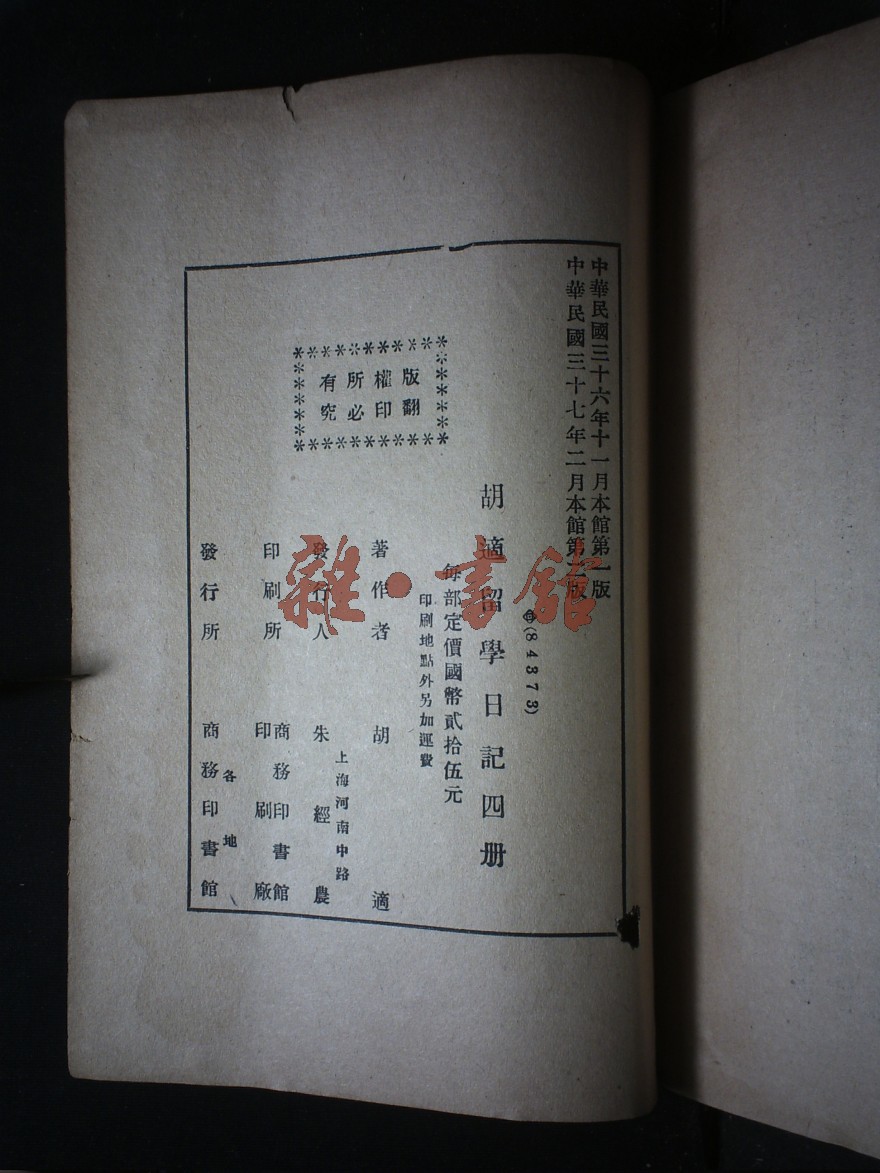 中華民國三十六年十一月本館第一版
中華民國三十七年二月本館第二版
(84373)
胡適留學日記四册
每部定價國幣貳拾伍元
印刷地點外另加運費
版權所有
翻印必究
著作者 胡適
上海河南中路
發行人 朱經農
印刷所 商務印書館
印刷廠
各地
發行所 商務印書館
雜·書館